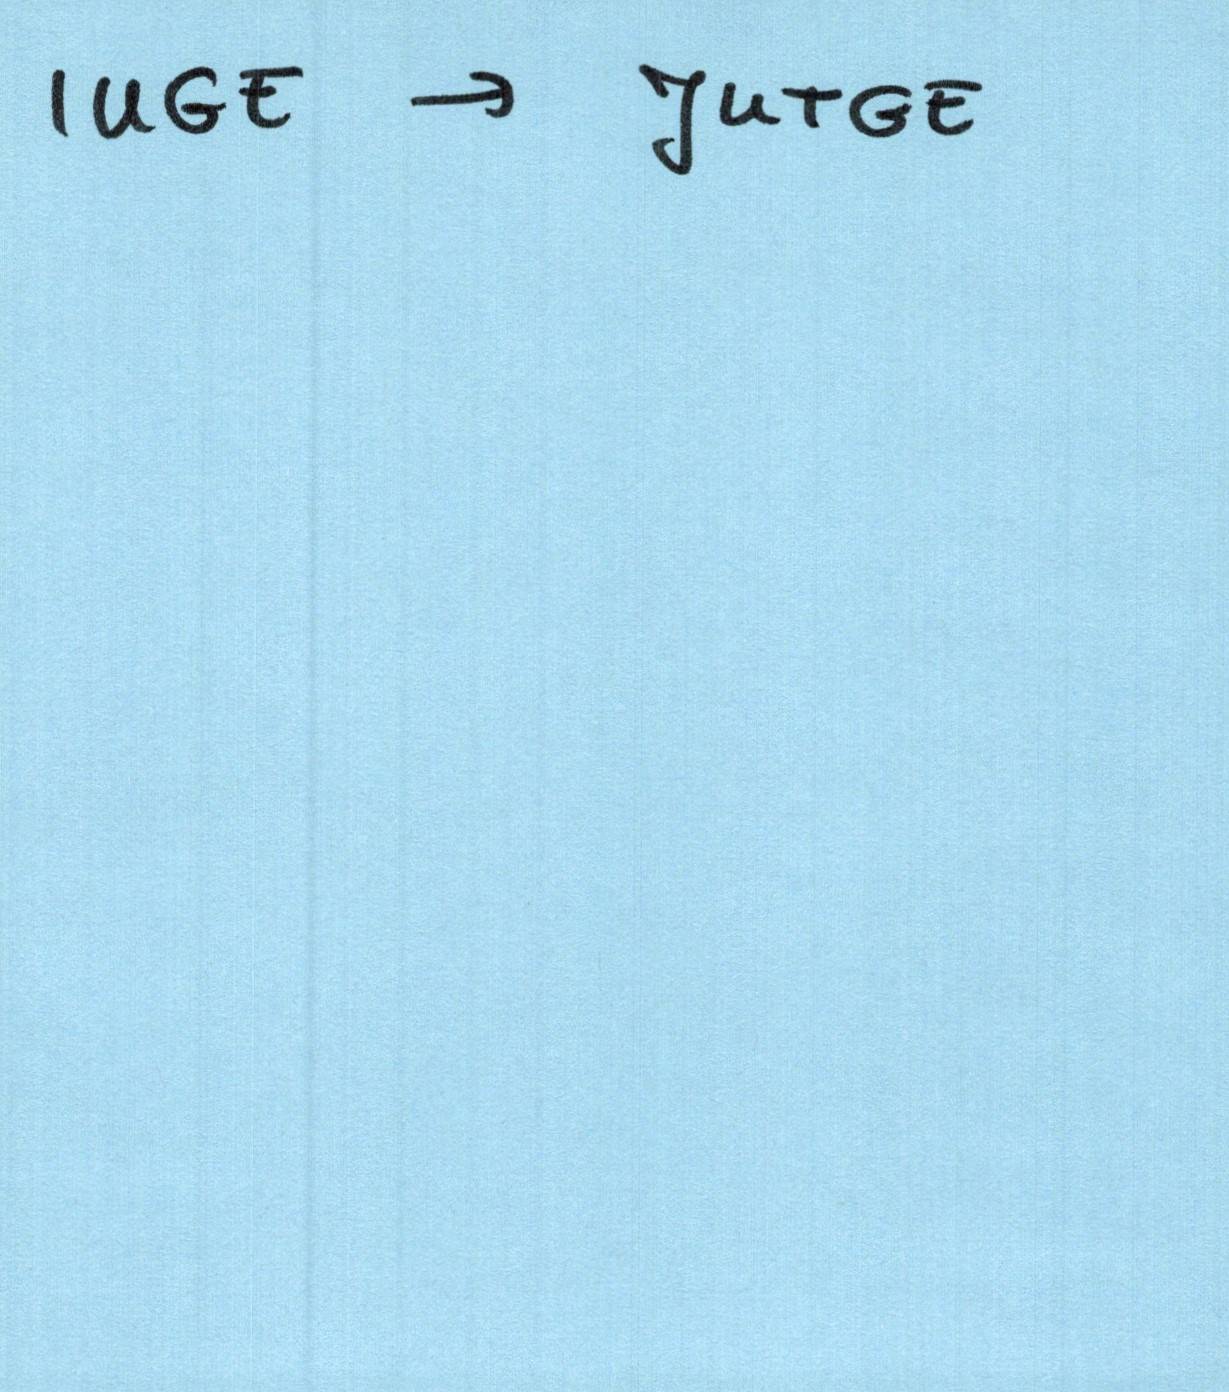 IUGE → JUTGE